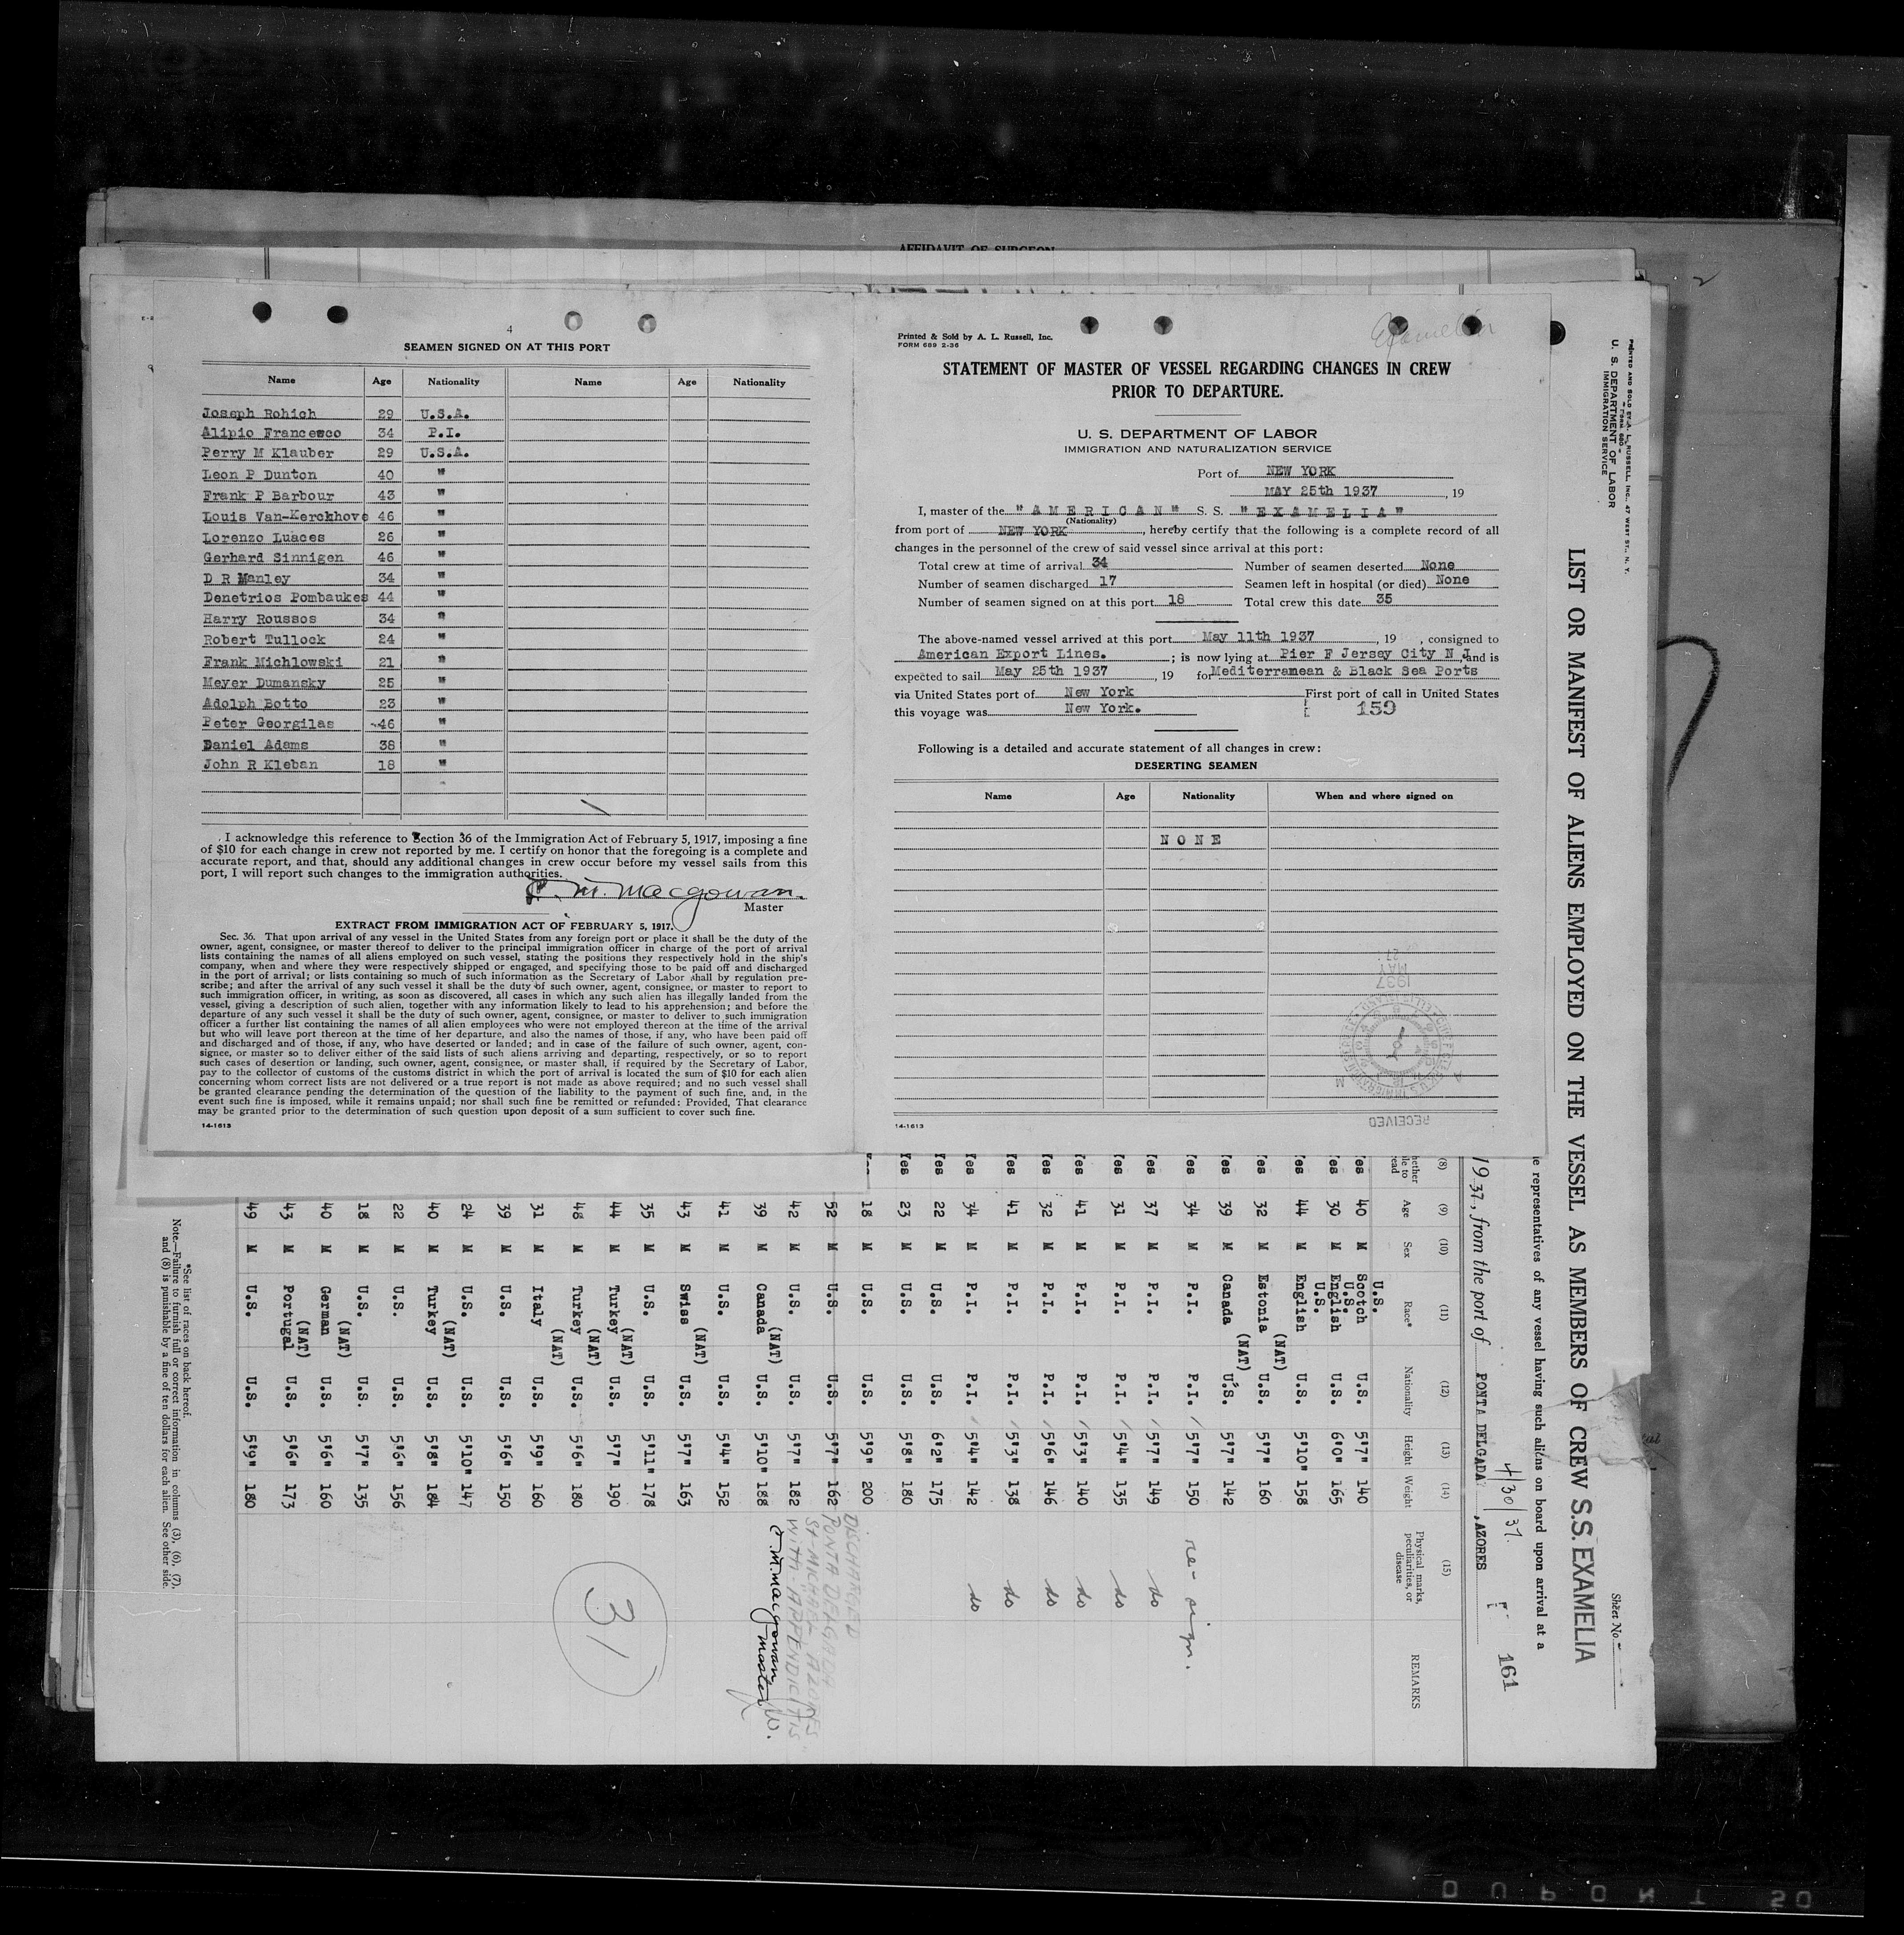 AFFIDAVIT OF SURGEON
4
SEAMEN SIGNED ON AT THIS PORT
Name Age Nationality Name Age Nationality
Joseph Rohich 29 U.S.A.
Alipio Francesco 34 P.I.
Perry M Klauber 29 U.S.A.
Leon P Dunton 40 "
Frank P Barbour 43 "
Louis Van-Kerckhove 46 "
Lorenzo Luaces 26 "
Gerhard Sinnigen 46 "
D R Manley 34 "
Denetrios Pombaukes 44 "
Harry Roussos 34 "
Robert Tullock 24 "
Frank Michlowski 21 "
Meyer Dumansky 25 "
Adolph Botto 23 "
Peter Georgilas 46 "
Daniel Adams 38 "
John R Kleban 18 "
I acknowledge this reference to Section 36 of the Immigration Act of February 5, 1917, imposing a fine
of $10 for each change in crew not reported by me. I certify on honor that the foregoing is a complete and
accurate report, and that, should any additional changes in crew occur before my vessel sails from this
port, I will report such changes to the immigration authorities.
J. M. MacGowan.
Master
EXTRACT FROM IMMIGRATION ACT OF FEBRUARY 5, 1917.
Sec. 36. That upon arrival of any vessel in the United States from any foreign port or place it shall be the duty of the
owner, agent, consignee, or master thereof to deliver to the principal immigration officer in charge of the port of arrival
lists containing the names of all aliens employed on such vessel, stating the positions they respectively hold in the ship's
company, when and where they were respectively shipped or engaged, and specifying those to be paid off and discharged
in the port of arrival; or lists containing so much of such information as the Secretary of Labor shall by regulation pre-
scribe; and after the arrival of any such vessel it shall be the duty of such owner, agent, consignee, or master to report to
such immigration officer, in writing, as soon as discovered, all cases in which any such alien has illegally landed from the
vessel, giving a description of such alien, together with any information likely to lead to his apprehension; and before the
departure of any such vessel it shall be the duty of such owner, agent, consignee, or master to deliver to such immigration
officer a further list containing the names of all alien employees who were not employed thereon at the time of the arrival
but who will leave port thereon at the time of her departure, and also the names of those, if any, who have been paid off
and discharged and of those, if any, who have deserted or landed; and in case of the failure of such owner, agent, con-
signee, or master so to deliver either of the said lists of such aliens arriving and departing, respectively, or so to report
such cases of desertion or landing, such owner, agent, consignee, or master shall, if required by the Secretary of Labor,
pay to the collector of customs of the customs district in which the port of arrival is located the sum of $10 for each alien
concerning whom correct lists are not delivered or a true report is not made as above required; and no such vessel shall
be granted clearance pending the determination of the question of the liability to the payment of such fine, and, in the
event such fine is imposed, while it remains unpaid; nor shall such fine be remitted or refunded: Provided, That clearance
may be granted prior to the determination of such question upon deposit of a sum sufficient to cover such fine.
14-1613
Printed & Sold by A. L. Russell, Inc.
FORM 689 2-36
STATEMENT OF MASTER OF VESSEL REGARDING CHANGES IN CREW
PRIOR TO DEPARTURE.
U. S. DEPARTMENT OF LABOR
IMMIGRATION AND NATURALIZATION SERVICE
Port of NEW YORK
MAY 25th 1937, 19
I, master of the "AMERICAN" S. S. "EXAMELIA"
(Nationality)
from port of NEW YORK, hereby certify that the following is a complete record of all
changes in the personnel of the crew of said vessel since arrival at this port:
Total crew at time of arrival 34 Number of seamen deserted None
Number of seamen discharged 17 Seamen left in hospital (or died) None
Number of seamen signed on at this port 18 Total crew this date 35
The above-named vessel arrived at this port May 11th 1937, 19 , consigned to
American Export Lines. ; is now lying at Pier F Jersey City N J, and is
expected to sail May 25th 1937, 19 for Mediterranean & Black Sea Ports
via United States port of New York First port of call in United States
this voyage was New York. 159
Following is a detailed and accurate statement of all changes in crew:
DESERTING SEAMEN
Name Age Nationality When and where signed on
NONE
1937
MAY
27
RECEIVED
14-1613
PRINTED AND SOLD BY A. L. RUSSELL, INC., 47 WEST ST., N. Y.
FORM 680
U. S. DEPARTMENT OF LABOR
IMMIGRATION SERVICE
Sheet No.
LIST OR MANIFEST OF ALIENS EMPLOYED ON THE VESSEL AS MEMBERS OF CREW S.S. EXAMELIA
representatives of any vessel having such aliens on board upon arrival at a
4/30/37. 161
1937, from the port of PONTA DELGADA, AZORES
(8) (9) (10) (11) (12) (13) (14) (15)
Age Sex Race* Nationality Height Weight Physical marks, peculiarities, or disease REMARKS
U.S.
Yes 40 M Scotch U.S. 5'7" 140
U.S.
Yes 30 M English U.S. 6'0" 165
U.S.
Yes 44 M English U.S. 5'10" 158
(NAT)
Yes 32 M Estonia U.S. 5'7" 160
(NAT)
Yes 39 M Canada U.S. 5'7" 142
Yes 34 M P.I. P.I. 5'7" 150 re-sign.
Yes 37 M P.I. P.I. 5'7" 149 do
Yes 31 M P.I. P.I. 5'4" 135 do
Yes 41 M P.I. P.I. 5'3" 140 do
Yes 32 M P.I. P.I. 5'6" 146 do
Yes 41 M P.I. P.I. 5'3" 138 do
Yes 34 M P.I. P.I. 5'4" 142 do
Yes 22 M U.S. U.S. 6'2" 175
Yes 23 M U.S. U.S. 5'8" 180
18 M U.S. U.S. 5'9" 200
52 M U.S. U.S. 5'7" 162
DISCHARGED
PONTA DELGADA
ST-MICHAEL AZORES.
WITH "APPENDICITIS
J. M. MacGowan Master
42 M U.S. U.S. 5'7" 182
(NAT)
39 M Canada U.S. 5'10" 188
41 M U.S. U.S. 5'4" 152
(NAT)
43 M Swiss U.S. 5'7" 163
35 M U.S. U.S. 5'11" 178
(NAT)
44 M Turkey U.S. 5'7" 190
(NAT)
48 M Turkey U.S. 5'6" 180
(NAT)
31 M Italy U.S. 5'9" 160
39 M U.S. U.S. 5'6" 150
24 M U.S. U.S. 5'10" 147
(NAT)
40 M Turkey U.S. 5'8" 184
22 M U.S. U.S. 5'6" 156
18 M U.S. U.S. 5'7" 135
(NAT)
40 M German U.S. 5'6" 160
(NAT)
43 M Portugal U.S. 5'6" 173
49 M U.S. U.S. 5'9" 180
31
*See list of races on back hereof.
Note.—Failure to furnish full or correct information in columns (3), (6), (7),
and (8) is punishable by a fine of ten dollars for each alien. See other side.
DUPONT 50